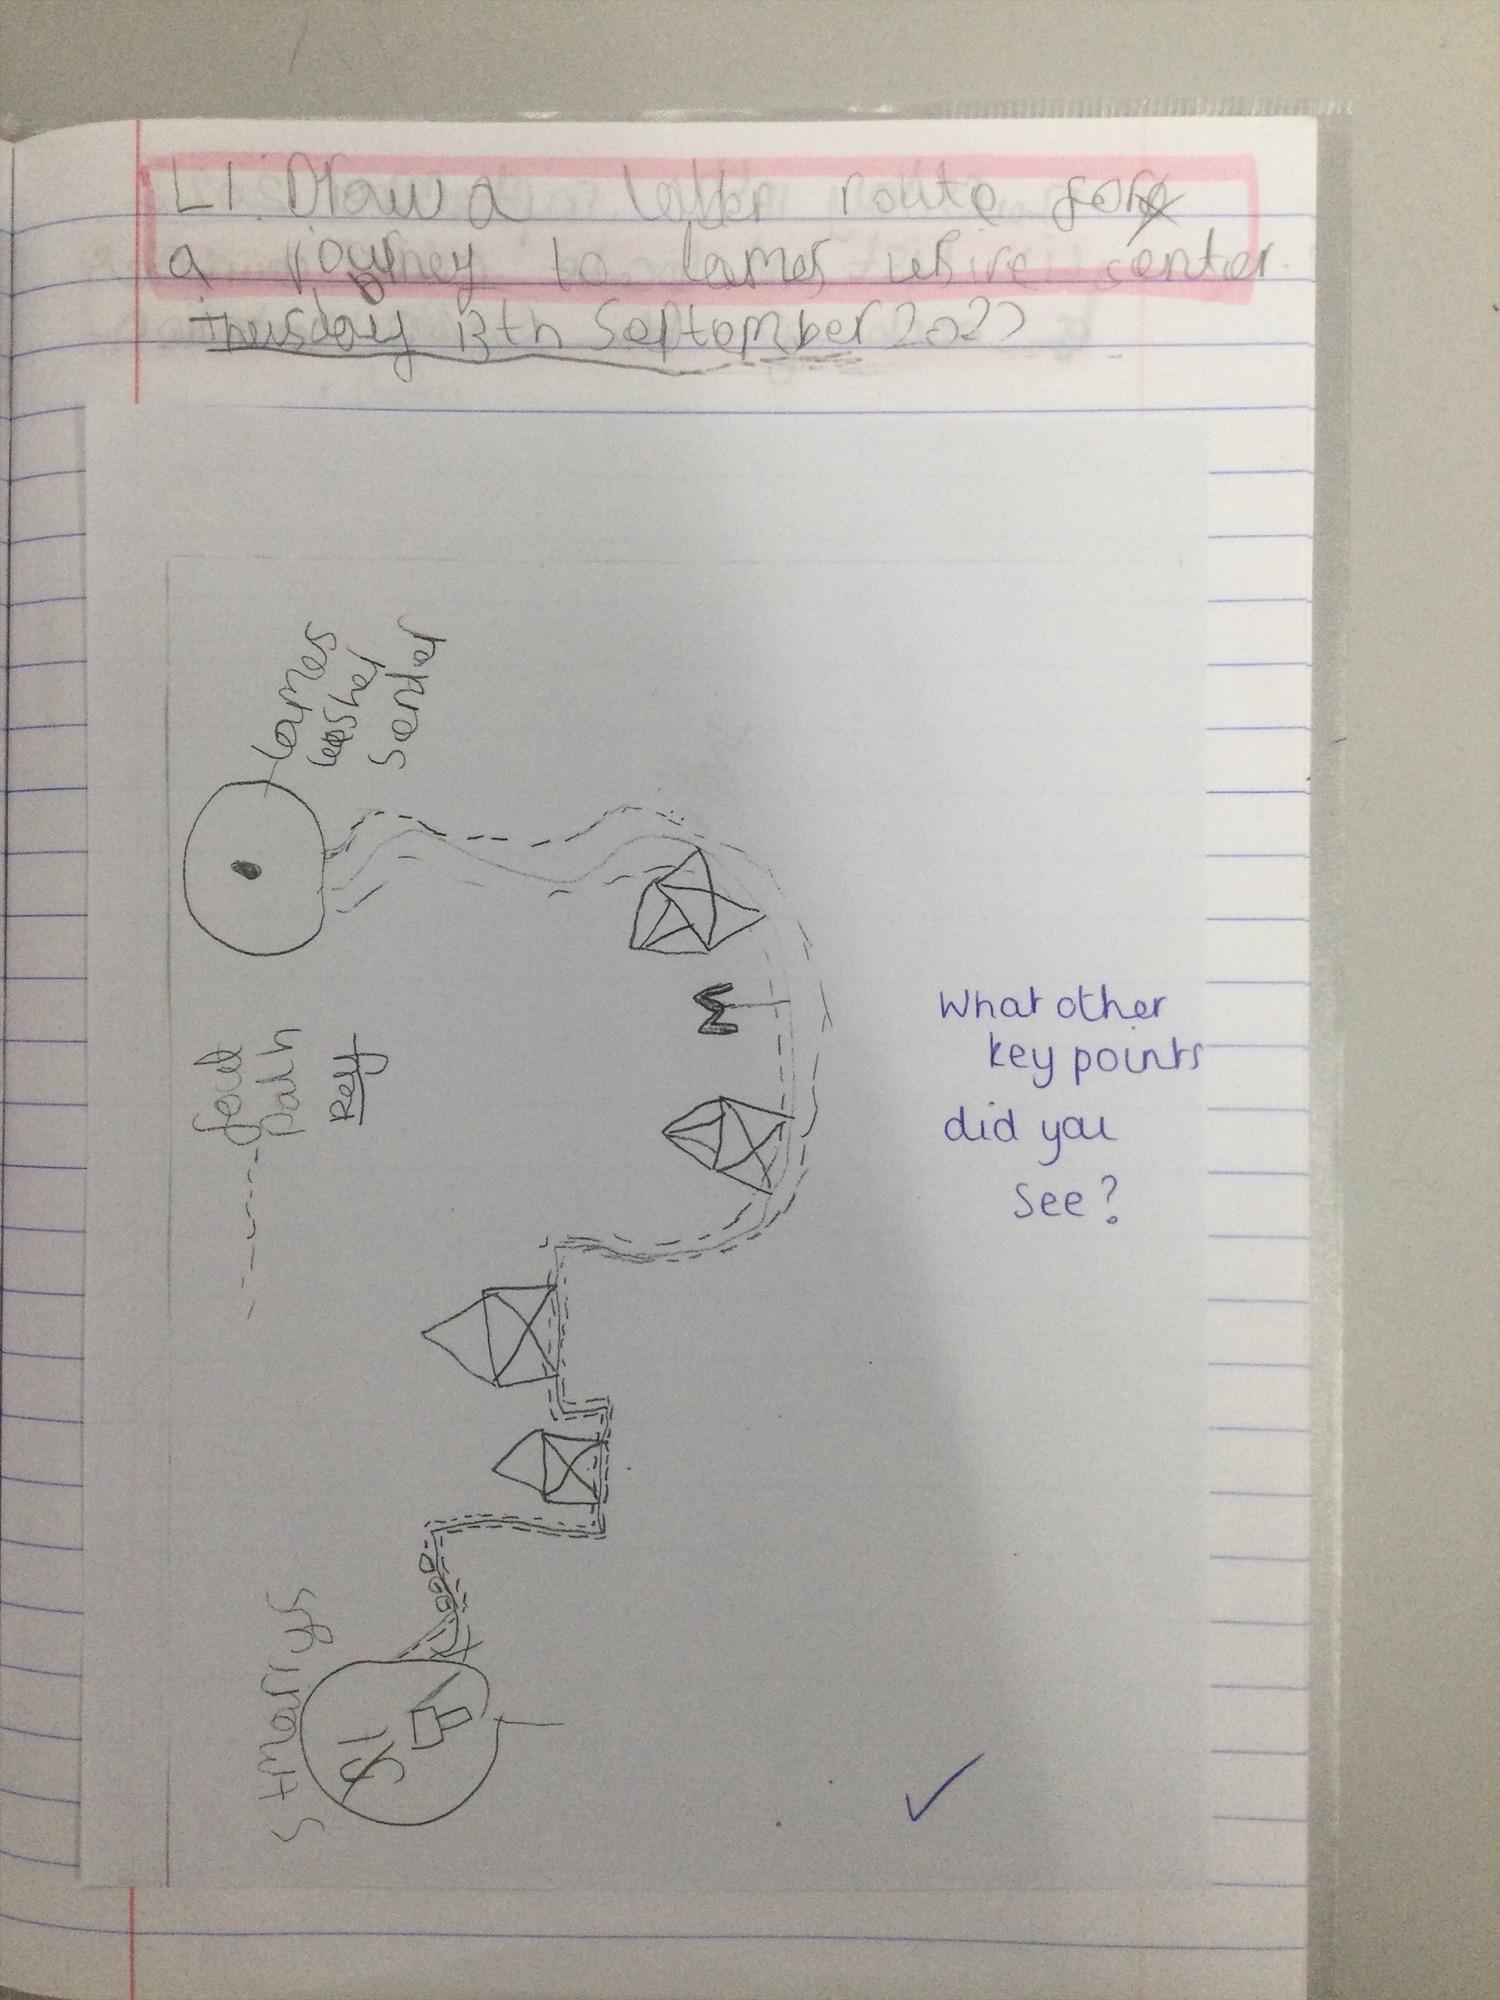 LI. Draw a route for
a journey to lames center.
Thusday 13th September 2022
lames
lesher
senter
M
foot
path
Key
What other
key points
did you
see?
St marrys
St